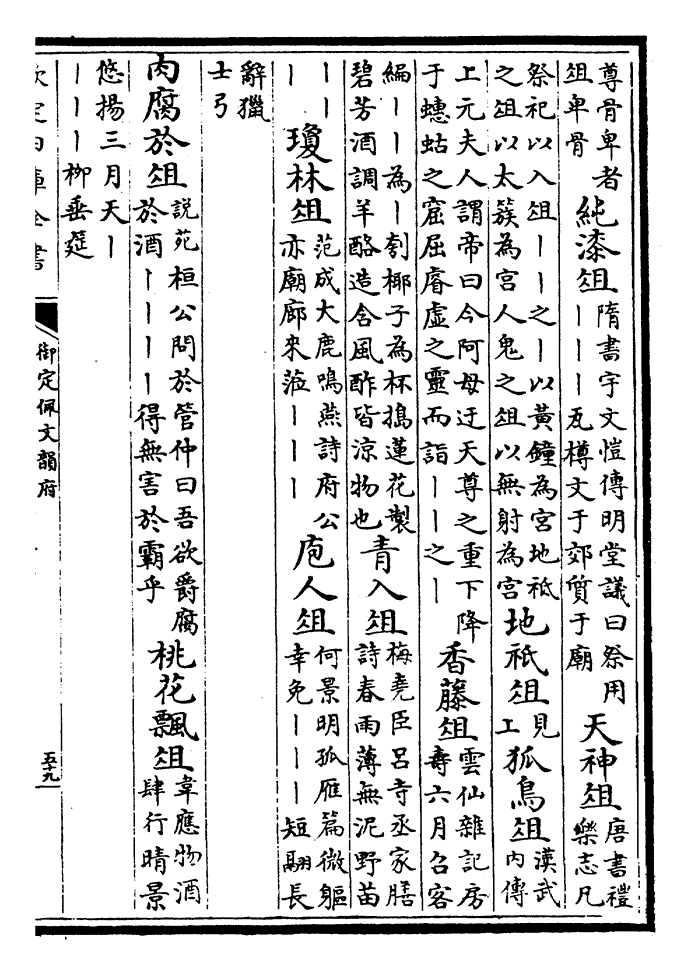 尊骨卑者
俎卑骨
純漆俎
隋書宇文愷傳明堂議曰祭用
丨丨丨瓦樽文于郊質于廟
天神俎
唐書禮
樂志凡
祭祀以入俎丨丨之丨以黃鐘為宮地祗
之俎以太簇為宮人鬼之俎以無射為宮
地祇俎
見
工
狐鳥俎
漢武
內傳
上元夫人謂帝曰今阿母迂天尊之重下降
于蟪蛄之窟屈虛之靈而詣丨丨之丨
香藤俎
雲仙雜記房
壽六月召客
編丨丨為丨刳椰子為杯搗蓮花製
碧芳酒調羊酪造含風酢皆涼物也
青入俎
梅堯臣呂寺丞家膳
詩春雨薄無泥野苗
丨丨
丨
瓊林俎
范成大鹿鳴燕詩府公
亦廟廊來蒞丨丨丨
庖人俎
何景明孤雁篇微軀
幸免丨丨丨短翮長
辭獵
士弓
肉腐於俎
說苑桓公問於管仲曰吾欲爵腐
於酒丨丨丨丨得無害於霸乎
桃花飄俎
韋應物酒
肆行晴景
悠揚三月天丨
丨丨丨柳垂筵
欽定四庫全書
御定佩文韻府
五十九